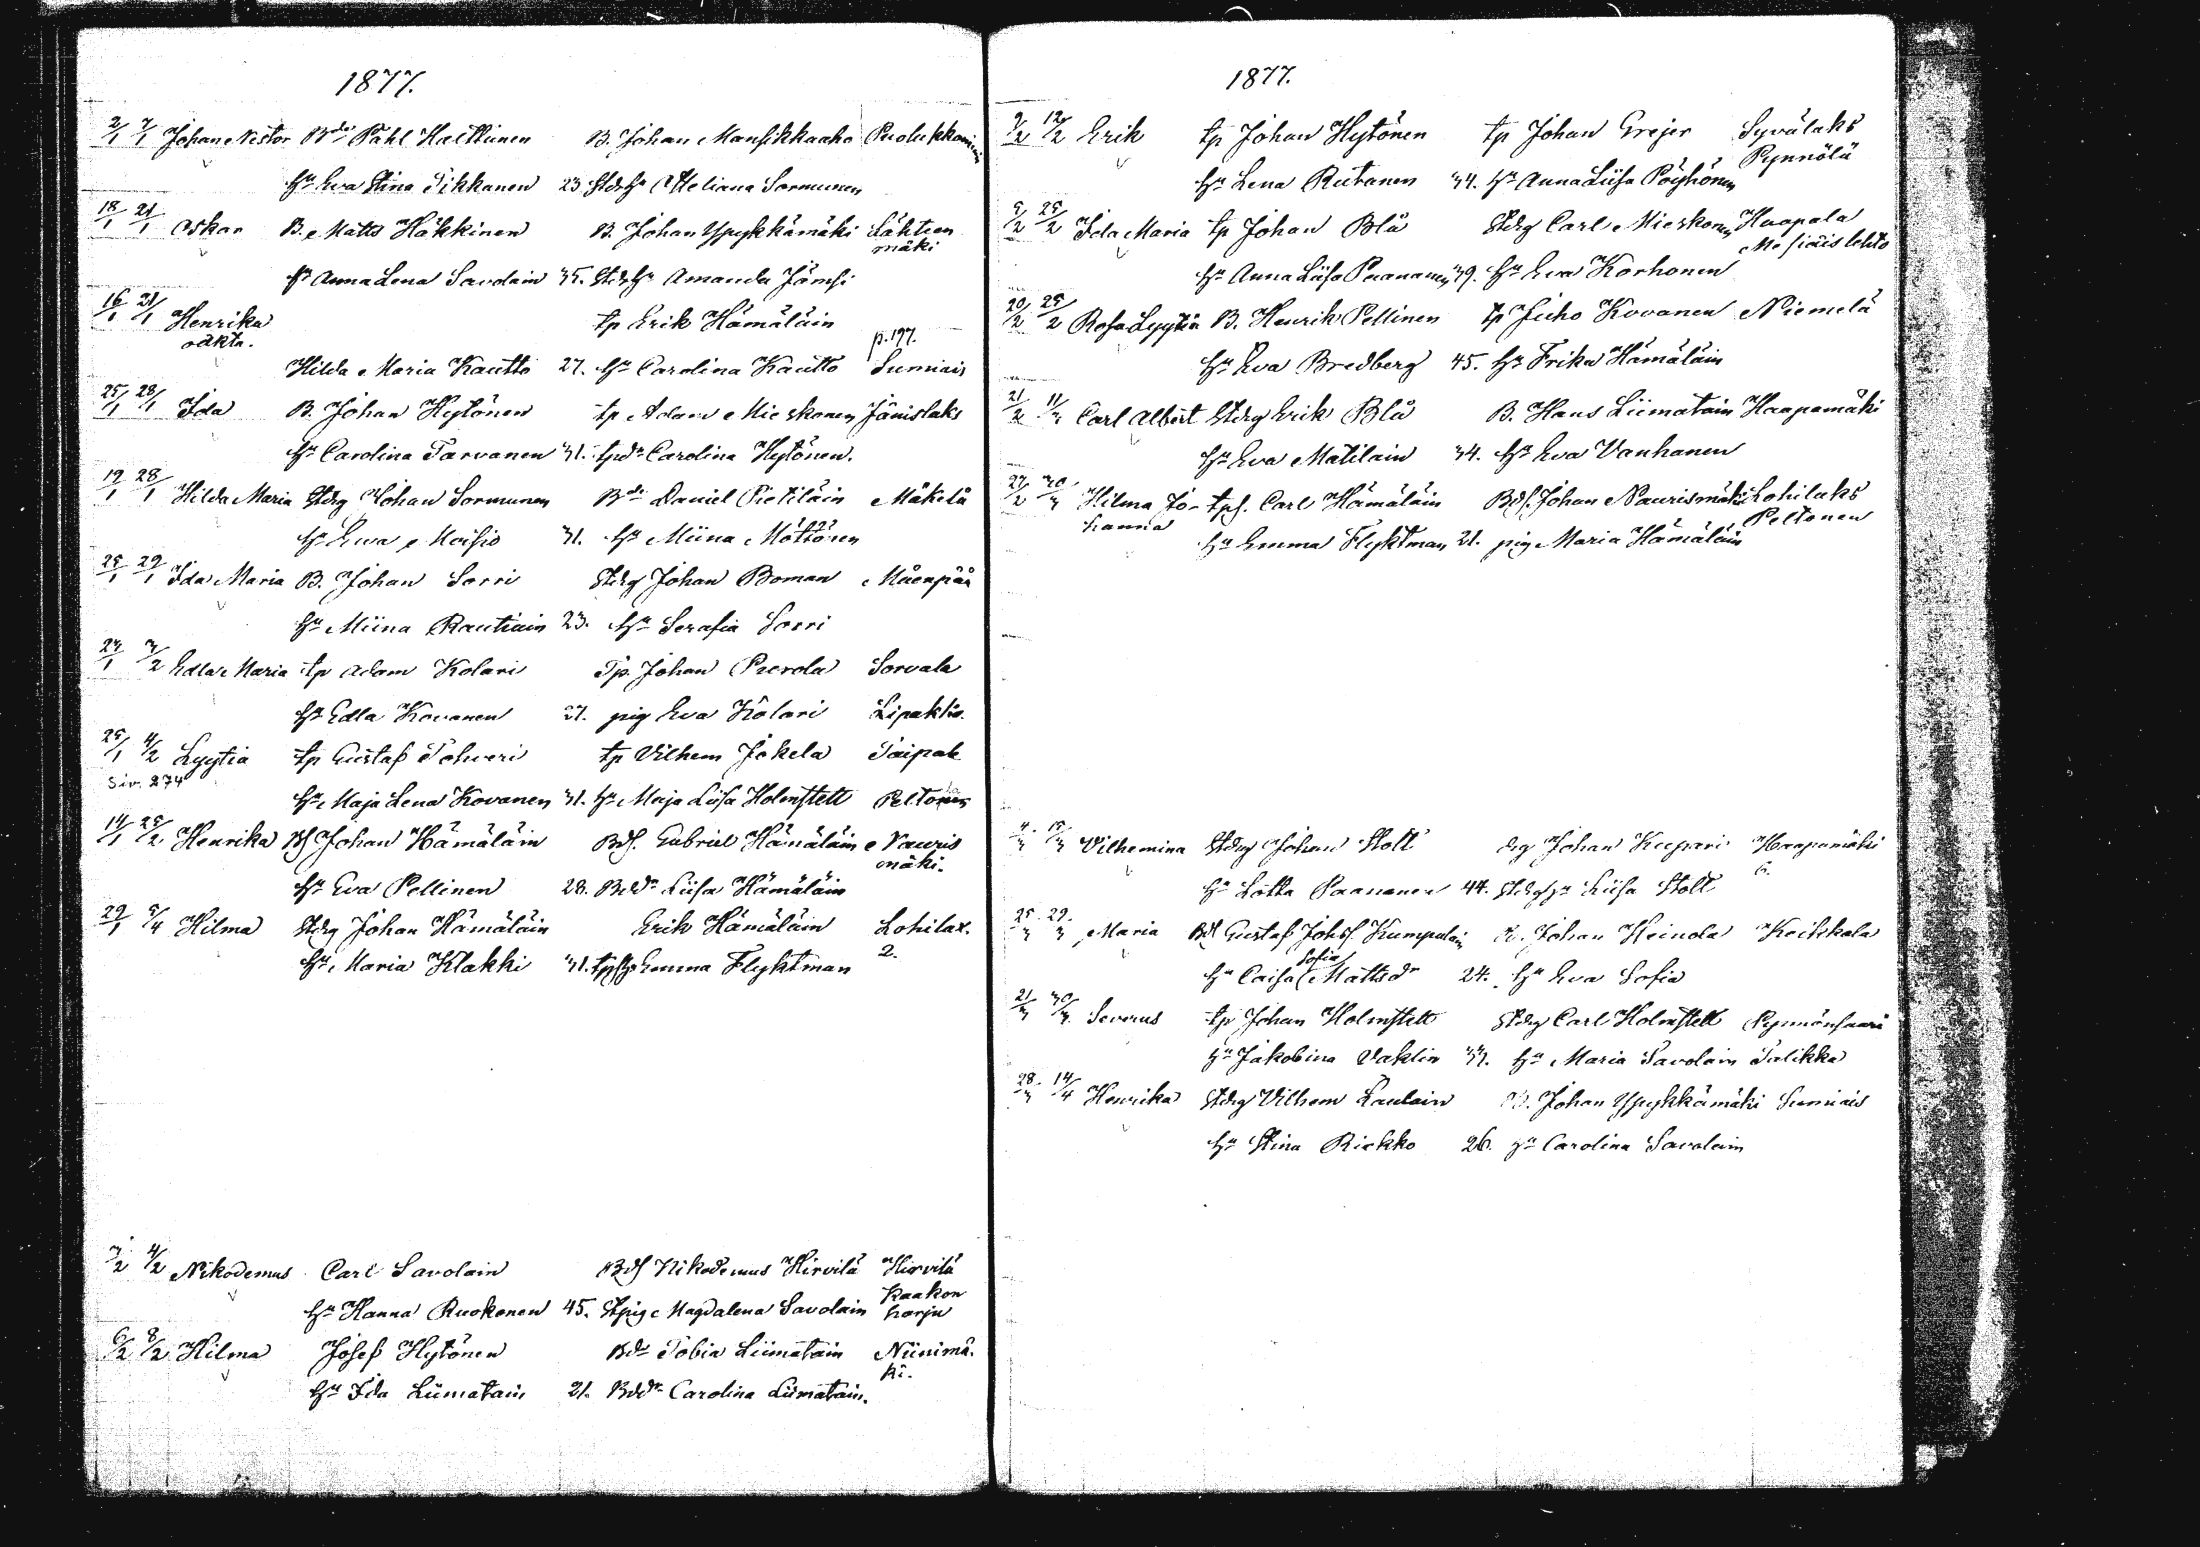 1877.
2/1 7/1 Johan Nestor Bde Påhl Halttunen B. Johan Mansikkaaho Puolukkoniemi
Hu Eva Stina Tikkanen 23 StdrHu Meliana Sormunen
18/1 21/1 Oskar B. Matts Häkkinen B. Johan Ypykkämäki Lähteen
mäki
Hu Anna Lena Savolain 35. StdrHu Amanda Jämsi
16/1 21/1 Henrika tp Erik Hämäläin
oäkta. p. 197.
Hilda Maria Kautto 27. Hu Carolina Kautto Sumiais
25/1 28/1 Ida B. Johan Hytönen tp Adam Mieskonen Jänislaks
Hu Carolina Tarvanen 31. tpdr Carolina Hytönen.
19/1 28/1 Hilda Maria Stdrg Johan Sormunen Bde Daniel Pietiläin Mäkelä
Hu Eva Moisio 31. Hu Miina Möttönen
25/1 29/1 Ida Maria B. Johan Sorri Stdrg Johan Boman Mäenpää
Hu Miina Rautiain 23. Hu Serafia Sorri
27/1 3/2 Edla Maria tp Adam Kolari Tp. Johan Purola Sorvala
Hu Edla Kovanen 27. pig Eva Kolari Lipaktis.
25/1 4/2 Lyytia tp Gustaf Tohveri tp Vilhem Jokela Taipale
Siv. 274
Hu Maja Lena Kovanen 31. Hu Maja Liisa Holmstett Peltonen
14/1 25/2 Henrika Bdf Johan Hämäläin Bdf. Gabriel Hämäläin Nauris
mäki.
Hu Eva Pellinen 28. Bddr Liisa Hämäläin
29/1 5/4 Hilma Stdrg Johan Hämäläin Erik Hämäläin Lohilax.
Hu Maria Klakki 31. tpfHu Emma Flyktman 2.
3/2 4/2 Nikodemus Carl Savolain Bdf Nikodemus Hirvilä Hirvilä
Hu Hanna Ruokonen 45. Stpig Magdalena Savolain Kaakon
harju
6/2 8/2 Hilma Josef Hytönen Bde Tobia Liimatain Niinimä.
ki.
Hu Ida Liimatain 21. Bddr Carolina Liimatain.
1877.
9/2 12/2 Erik tp Johan Hytönen tp Johan Grejer Syvälaks
Pynnölä
Hu Lena Rutanen 34. Hu Anna Liisa Pöyhönen
5/2 25/2 Ida Maria tp Johan Blå Stdrg Carl Mieskonen Haapala
Mesiäislehto
Hu Anna Liisa Paananen 39. Hu Eva Korhonen
20/2 25/2 Rosa Lyytia B. Henrik Pellinen tp Juho Kovanen Niemelä
Hu Eva Bredberg 45. Hu Frika Hämäläin
21/2 11/3 Carl Albert Stdrg Erik Blå B. Hans Liimatain Haapamäki
Hu Eva Matilain 34. Hu Eva Vanhanen
27/2 30/3 Hilma Jo- tpf. Carl Hämäläin Bdf. Johan Naurismäki Lohilaks
hanna Peltonen
Hu Emma Flyktman 21. pig Maria Hämäläin
4/3 18/3 Vilhemina Stdrg Johan Stolt drg Johan Kupari Haapamäki
6.
Hu Lotta Paananen 44. StdrgHu Liisa Stolt
25/3 29/3 Maria Bdf Gustaf Johsf. Kumpulain B. Johan Heinola Keikkala
Sofia
Hu Caisa Mattsdr 24. Hu Eva Sofia
21/3 30/3 Severus tp Johan Holmstett Stdrg Carl Holmstett Pynnönsaari
Hu Jakobina Vaklin 33. Hu Maria Savolain Talikka
28/3 14/4 Henrika Stdrg Vilhem Laulain B. Johan Ypykkämäki Sumiais
Hu Stina Riekko 26. Hu Carolina Savolain